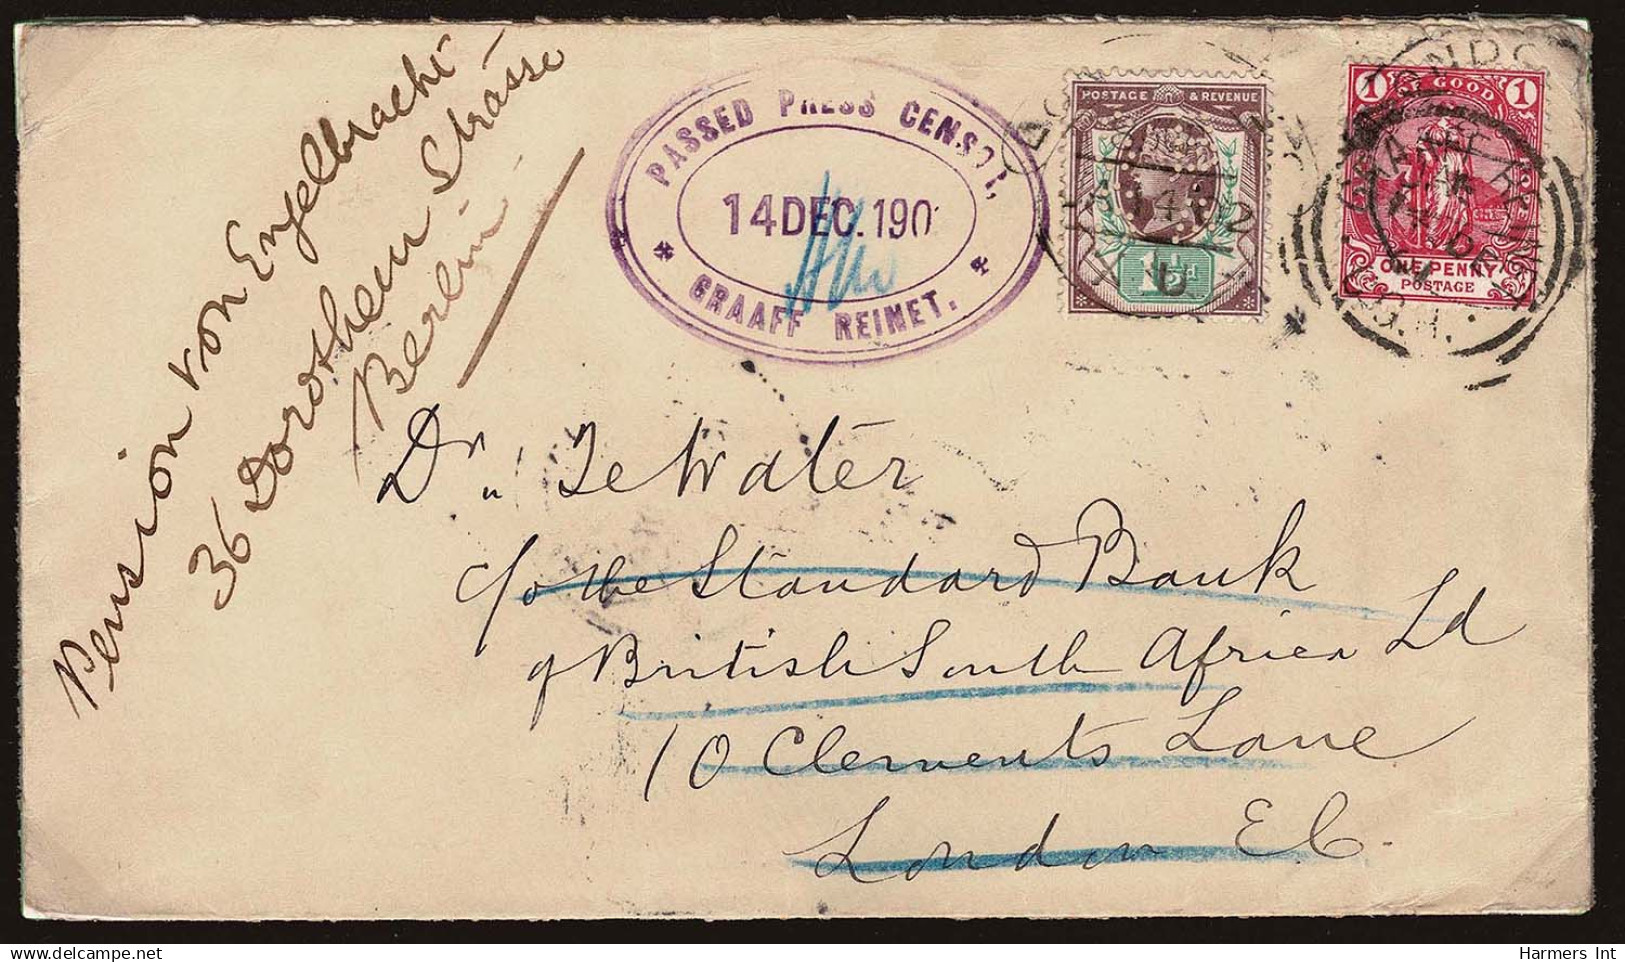 Pension von Engelbracht
36 Dorotheen Strasse
Berlin
PASSED PRESS
14 DEC. 190
GRAAFF REINET.
POSTAGE & REVENUE
1½d
1 GOOD 1
ONE PENNY
POSTAGE
Dr. Te Water
c/o the Standard Bank
of British South Africa Ld
10 Clements Lane
London E C.
Harmers Int